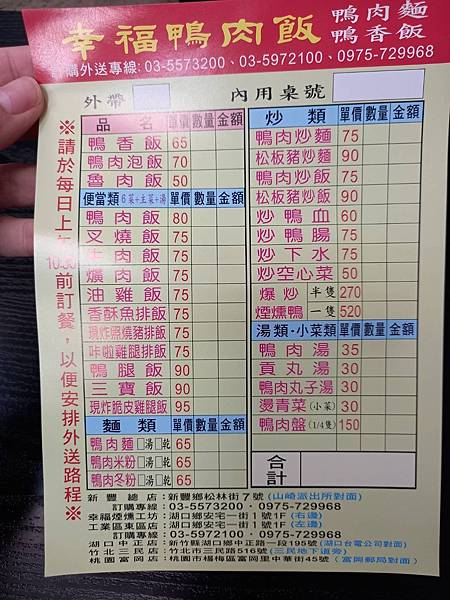 幸福鴨肉飯 鴨肉麵 鴨香飯
訂購外送專線: 03-5573200、03-5972100、0975-729968
外帶 內用桌號
※請於每日上午10:30前訂餐，以便安排外送路程※
品名 單價 數量 金額
鴨香飯 65
鴨肉泡飯 70
魯肉飯 50
便當類 6菜+主菜+湯 單價 數量 金額
鴨肉飯 80
叉燒飯 75
肉飯 75
爌肉飯 75
油雞飯 75
香酥魚排飯 75
現炸照燒豬排飯 75
咔啦雞腿排飯 75
鴨腿飯 90
三寶飯 90
現炸脆皮雞腿飯 95
麵類 單價 數量 金額
鴨肉麵 □湯 □乾 65
鴨肉米粉 □湯 □乾 65
鴨肉冬粉 □湯 □乾 65
炒類 單價 數量 金額
鴨肉炒麵 75
松板豬炒麵 90
鴨肉炒飯 75
松板豬炒飯 90
炒鴨血 60
炒鴨腸 75
炒下水 75
炒空心菜 50
爆炒 半隻 270
煙燻鴨 一隻 520
湯類·小菜類 單價 數量 金額
鴨肉湯 35
貢丸湯 30
鴨肉丸子湯 30
燙青菜 (小菜) 30
鴨肉盤 (1/4隻) 150
合計
新豐總店：新豐鄉松林街7號(山崎派出所對面)
訂購專線：03-5573200、0975-729968
幸福煙燻工坊：湖口鄉安宅一街1號1F(右邊)
工業區東區店：湖口鄉安宅一街1號1F(左邊)
訂購專線：03-5972100、0975-729968
湖口中正店：新竹縣湖口鄉中正路一段195號(湖口台電公司對面)
竹北三民店：竹北市三民路516號(三民地下道旁)
桃園富岡店：桃園市楊梅區富岡里中華街45號(富岡郵局對面)